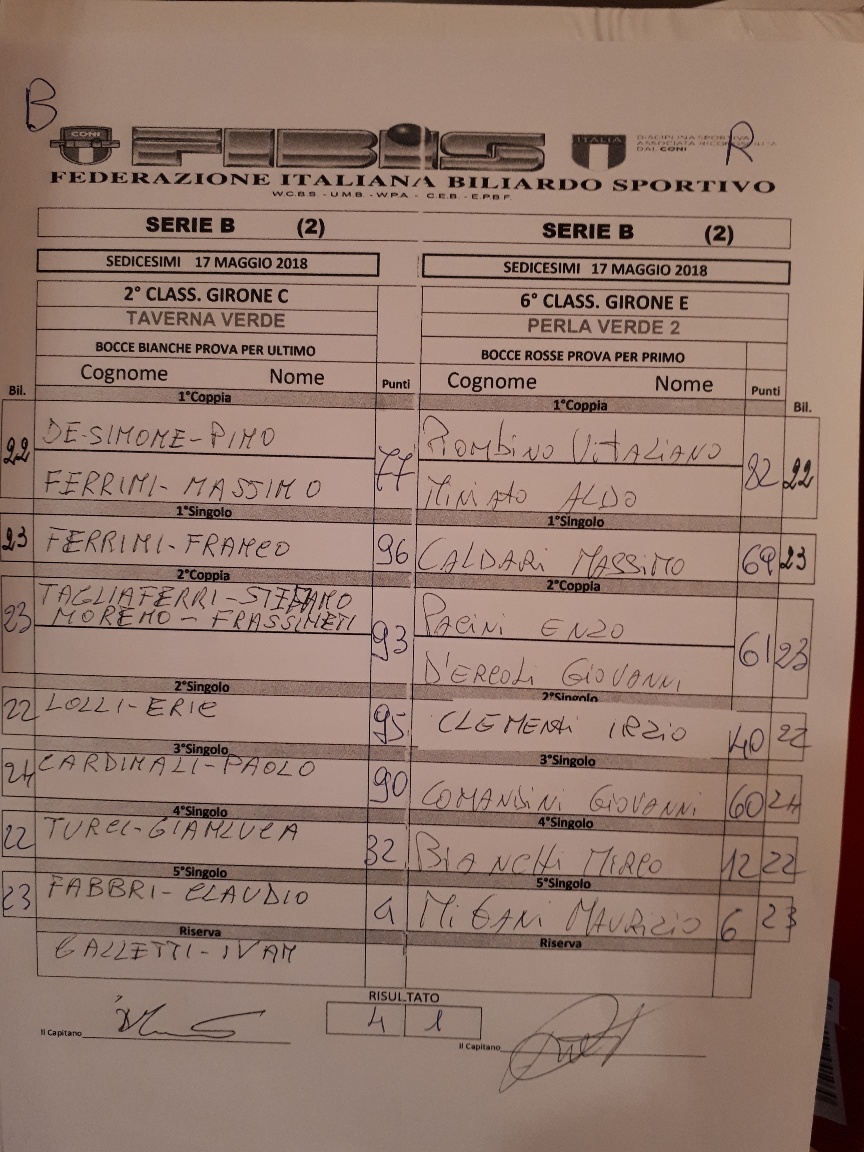 B
R
CONI
FIBiS
ITALIA
DISCIPLINA SPORTIVA
ASSOCIATA RICONOSCIUTA
DAL CONI
FEDERAZIONE ITALIANA BILIARDO SPORTIVO
W.C.B.S - U.M.B - W.P.A - C.E.B - E.P.B.F.
SERIE B (2)
SERIE B (2)
SEDICESIMI 17 MAGGIO 2018
SEDICESIMI 17 MAGGIO 2018
2° CLASS. GIRONE C
6° CLASS. GIRONE E
TAVERNA VERDE
PERLA VERDE 2
BOCCE BIANCHE PROVA PER ULTIMO
BOCCE ROSSE PROVA PER PRIMO
Bil. Cognome Nome Punti
Cognome Nome Punti Bil.
1°Coppia
1°Coppia
22 DE-SIMONE-PINO 77
FERRINI-MASSIMO
ROMBINO VITALIANO 82 22
MINATO ALDO
1°Singolo
1°Singolo
23 FERRINI-FRANCO 96
CALDARI MASSIMO 69 23
2°Coppia
2°Coppia
23 TAGLIAFERRI-STEFANO 93
MORENO-FRASSINETI
PACINI ENZO 61 23
D'ERCOLI GIOVANNI
2°Singolo
2°Singolo
22 LOLLI-ERIC 95
CLEMENTI IRZIO 40 22
3°Singolo
3°Singolo
24 CARDINALI-PAOLO 90
COMANDINI GIOVANNI 60 24
4°Singolo
4°Singolo
22 TURCI-GIANLUCA 32
BIANCHI MIRCO 12 22
5°Singolo
5°Singolo
23 FABBRI-CLAUDIO 4
MIGANI MAURIZIO 6 23
Riserva
Riserva
GALLETTI-IVAN
RISULTATO
4 1
Il Capitano
Il Capitano